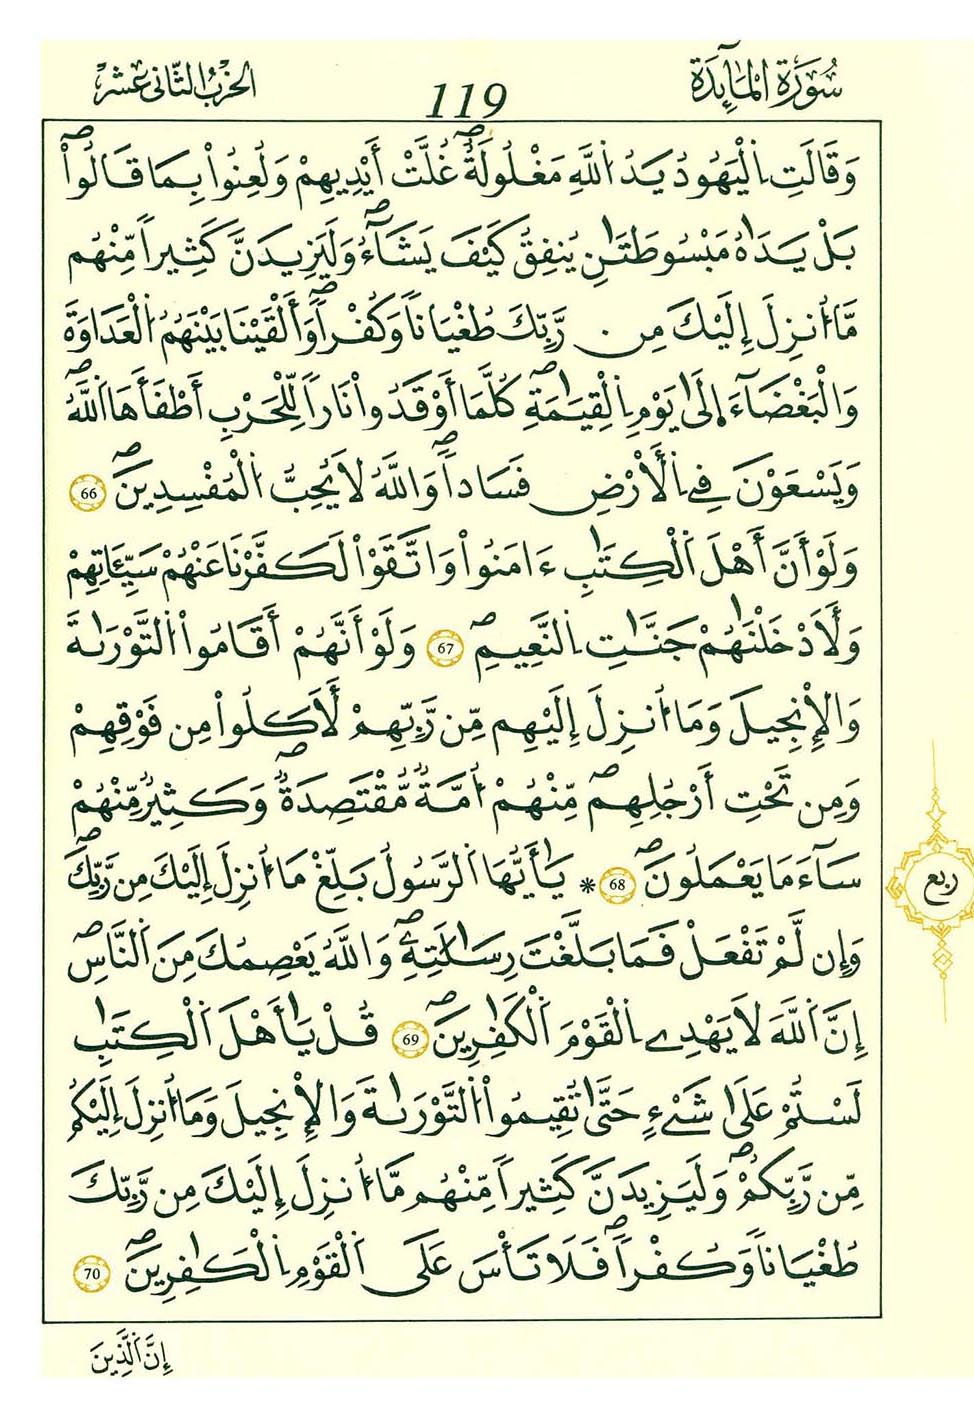 سُورَةُ الْمَآئِدَةِ
119
الحِزْبُ الثَّانِي عَشَرَ
وَقَالَتِ اِ۬لْيَهُودُ يَدُ اُ۬للَّهِ مَغْلُولَةٌۖ غُلَّتْ أَيْدِيهِمْ وَلُعِنُواْ بِمَا قَالُواْۖ
بَلْ يَدَاهُ مَبْسُوطَتَٰنِ يُنفِقُ كَيْفَ يَشَآءُۖ وَلَيَزِيدَنَّ كَثِيراٗ مِّنْهُم
مَّآ أُنزِلَ إِلَيْكَ مِن رَّبِّكَ طُغْيَٰناٗ وَكُفْراٗۖ وَأَلْقَيْنَا بَيْنَهُمُ اُ۬لْعَدَاوَةَ
وَالْبَغْضَآءَ اِ۪لَىٰ يَوْمِ اِ۬لْقِيَٰمَةِۖ كُلَّمَآ أَوْقَدُواْ نَاراٗ لِّلْحَرْبِ أَطْفَأَهَا اَ۬للَّهُۖ
وَيَسْعَوْنَ فِے اِ۬لْأَرْضِ فَسَاداٗۖ وَاللَّهُ لَا يُحِبُّ اُ۬لْمُفْسِدِينَۖ 66
وَلَوْ أَنَّ أَهْلَ اَ۬لْكِتَٰبِ ءَامَنُواْ وَاتَّقَوْاْ لَكَفَّرْنَا عَنْهُمْ سَيِّـَٔاتِهِمْ
وَلَأَدْخَلْنَٰهُمْ جَنَّٰتِ اِ۬لنَّعِيمِۖ 67 وَلَوْ أَنَّهُمْ أَقَامُواْ اُ۬لتَّوْرَىٰةَ
وَالْإِنجِيلَ وَمَآ أُنزِلَ إِلَيْهِم مِّن رَّبِّهِمْ لَأَكَلُواْ مِن فَوْقِهِمْ
وَمِن تَحْتِ أَرْجُلِهِمۖ مِّنْهُمْ أُمَّةٞ مُّقْتَصِدَةٞۖ وَكَثِيرٞ مِّنْهُمْ
سَآءَ مَا يَعْمَلُونَۖ 68 * يَٰٓأَيُّهَا اَ۬لرَّسُولُ بَلِّغْ مَآ أُنزِلَ إِلَيْكَ مِن رَّبِّكَۖ
وَإِن لَّمْ تَفْعَلْ فَمَا بَلَّغْتَ رِسَٰلَٰتِهِۦۖ وَاللَّهُ يَعْصِمُكَ مِنَ اَ۬لنَّاسِۖ
إِنَّ اَ۬للَّهَ لَا يَهْدِے اِ۬لْقَوْمَ اَ۬لْكَٰفِرِينَۖ 69 قُلْ يَٰٓأَهْلَ اَ۬لْكِتَٰبِ
لَسْتُمْ عَلَىٰ شَےْءٍ حَتَّىٰ تُقِيمُواْ اُ۬لتَّوْرَىٰةَ وَالْإِنجِيلَ وَمَآ أُنزِلَ إِلَيْكُم
مِّن رَّبِّكُمْۖ وَلَيَزِيدَنَّ كَثِيراٗ مِّنْهُم مَّآ أُنزِلَ إِلَيْكَ مِن رَّبِّكَ
طُغْيَٰناٗ وَكُفْراٗۖ فَلَا تَأْسَ عَلَى اَ۬لْقَوْمِ اِ۬لْكَٰفِرِينَۖ 70
ربع
إِنَّ اَ۬لَّذِينَ